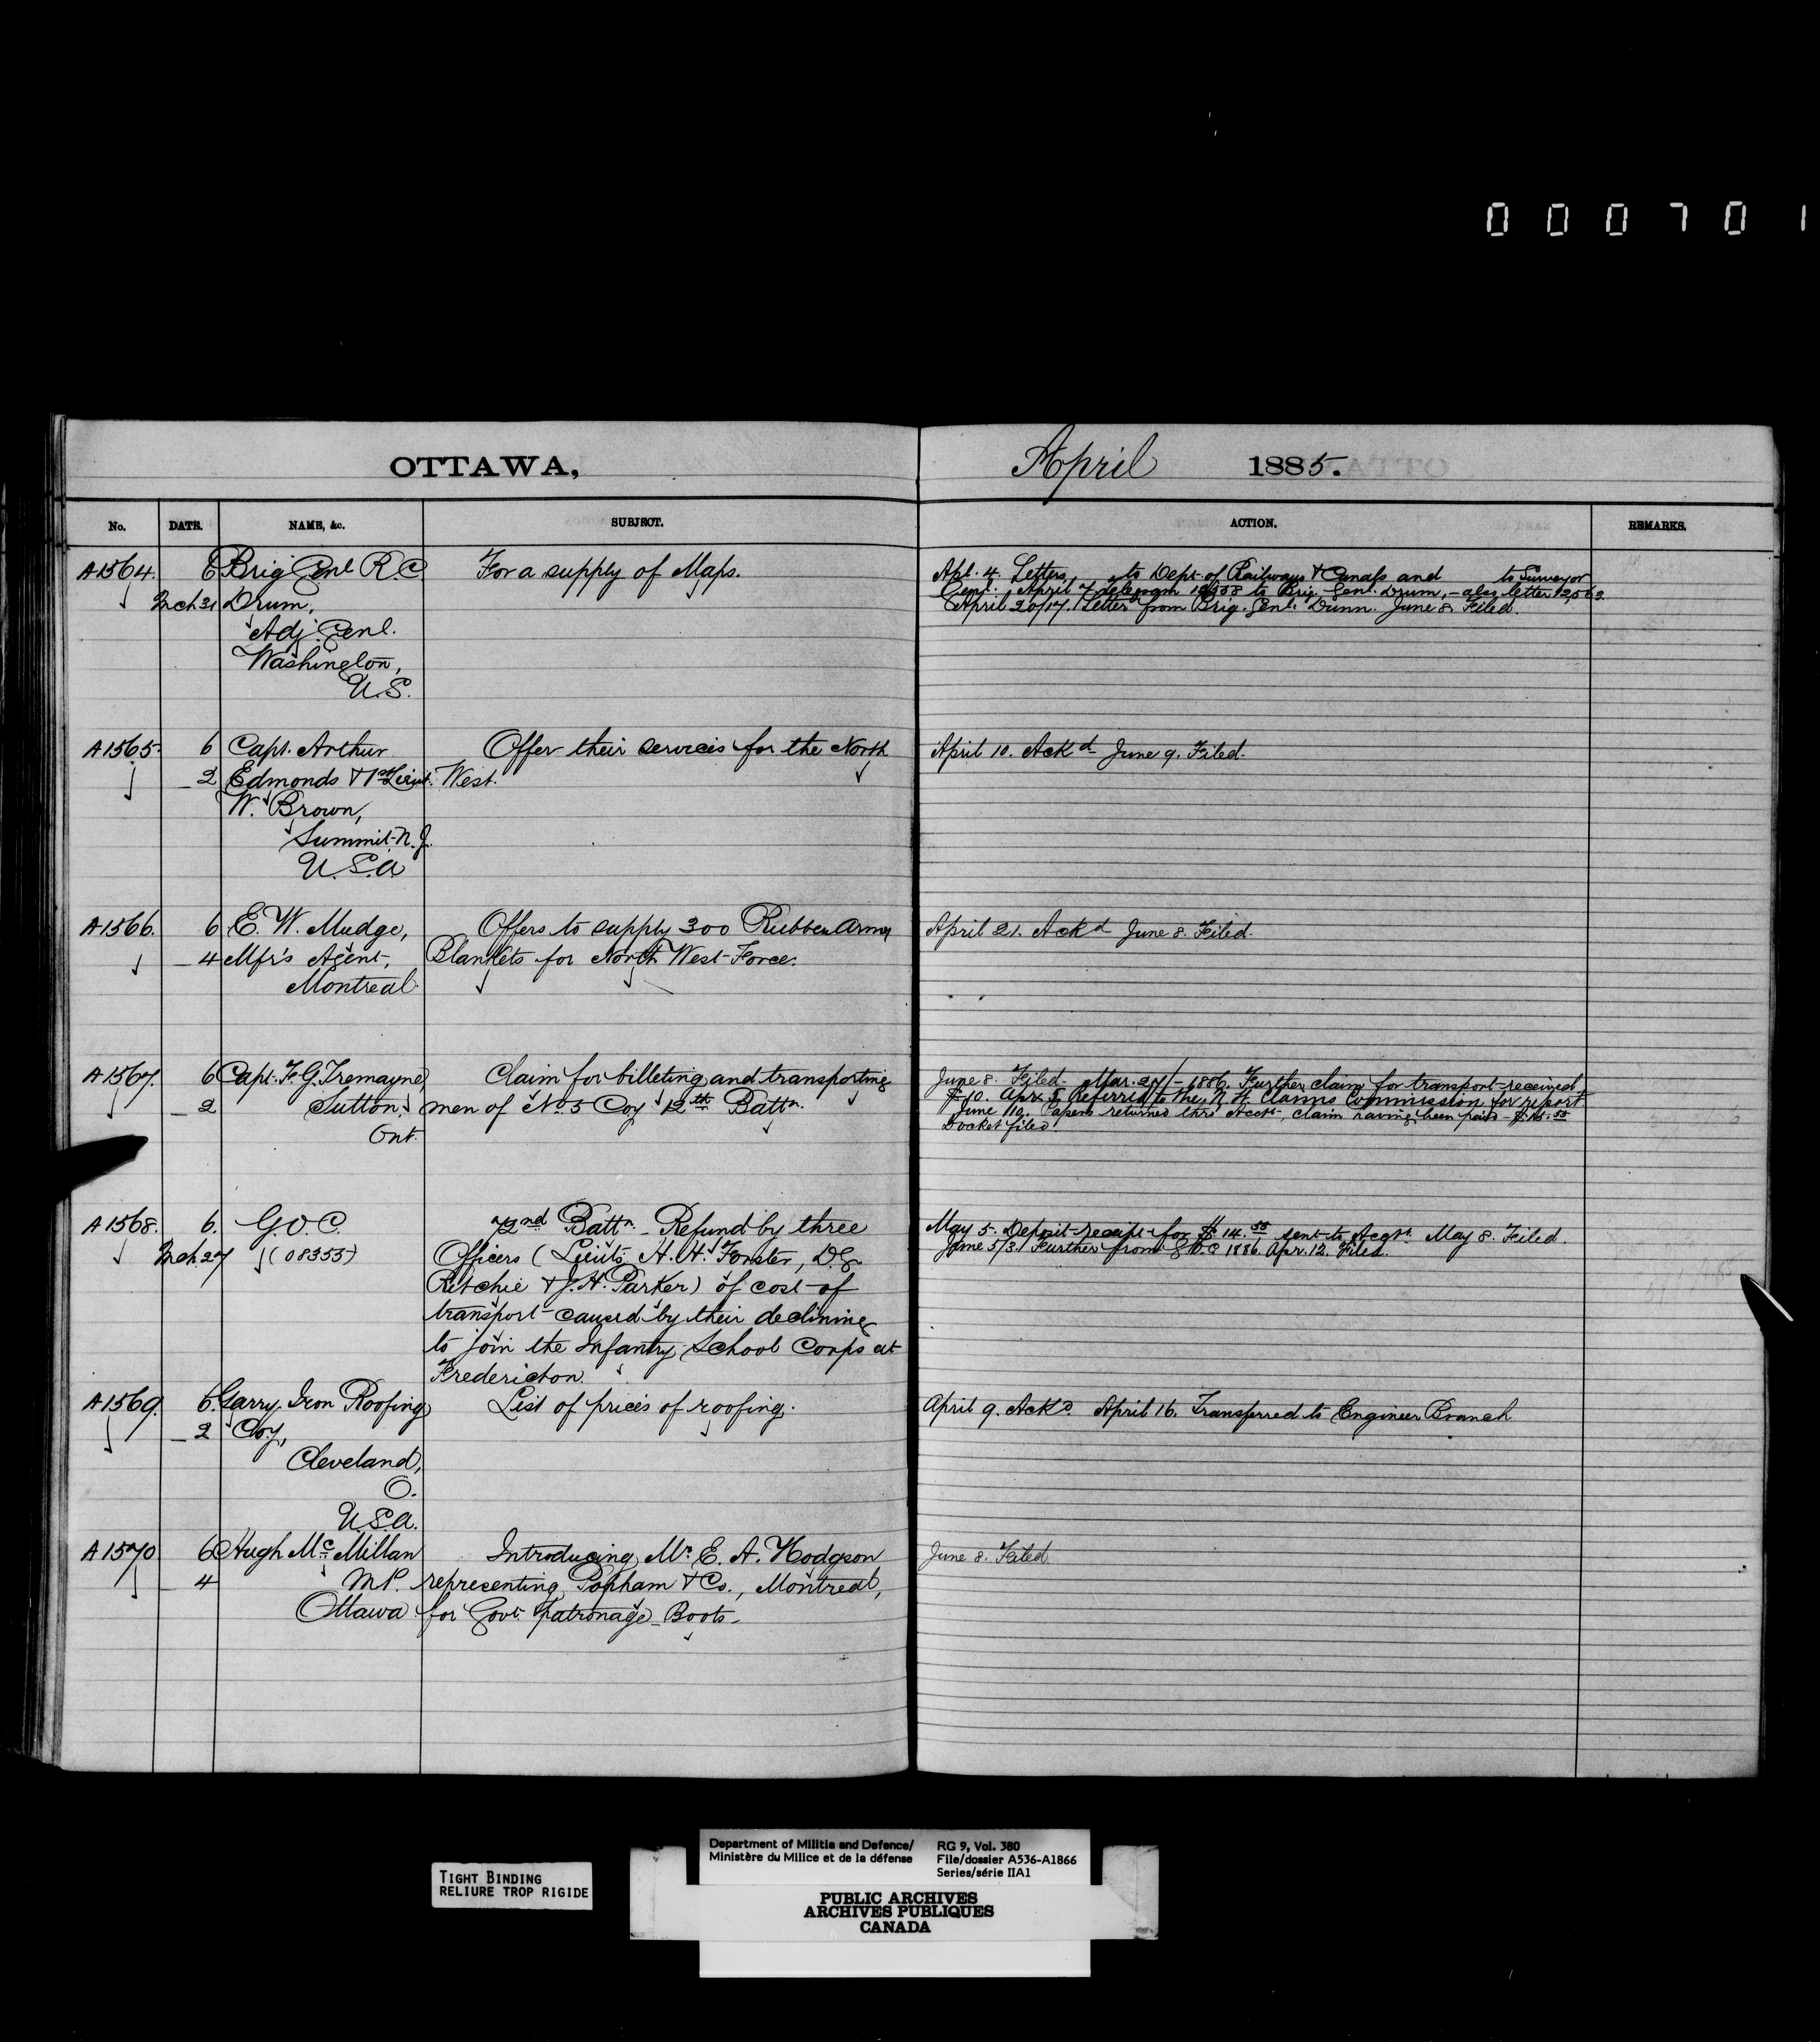 000701
OTTAWA,
April 1885.
No. DATE. NAME, &c. SUBJECT. ACTION. REMARKS.
A1564. 6 Brig Genl R.C. For a supply of Maps.
Mch 31 Drum,
Adj. Genl.
Washington,
U.S.
Apl. 4. Letters, to Dept. of Railways & Canals and to Surveyor
Genl. April 7 telegram to Brig. Genl. Drum, - also letter 12,563.
April 20/17. Letter from Brig. Genl. Dunn. June 8 Filed.
A1565. 6 Capt. Arthur Offer their services for the North
2 Edmonds & 1st Lieut. West.
W. Brown,
Summit N.J.
U.S.A
April 10. Ackd June 9. Filed.
A1566. 6 E. W. Mudge, Offers to supply 300 Rubber Army
4 Mfr's Agent, Blankets for North West Force.
Montreal
April 21. Ackd June 8. Filed.
A1567. 6 Capt. F. G. Tremayne, Claim for billeting and transporting
2 Sutton, men of No. 5 Coy 12th Battn.
Ont.
June 8. Filed. Mar. 27/-1886. Further claim for transport received
$10. Apr. 5 Referred to the N.W. Claims Commission for report.
June 10. Papers returned thro' Acct., claim having been paid
Docket filed.
A1568. 6. G.O.C. 72nd Battn. Refund by three
Mch 27 (08353) Officers (Lieuts. H. H. Forster, D. G.
Ritchie & J. H. Parker) of cost of
transport caused by their declining
to join the Infantry School Corps at
Fredericton.
May 5. Deposit receipt for $14.55 sent to Acct. May 8. Filed.
June 5/3. Further from G.O.C 1886. Apr. 12. Filed.
A1569. 6. Garry Iron Roofing List of prices of roofing.
2 Coy,
Cleveland,
O.
U.S.A.
April 9. Ackd. April 16. Transferred to Engineer Branch
A1570 6 Hugh McMillan Introducing Mr. E. A. Hodgson
4 M.P. representing Popham & Co., Montreal,
Ottawa for Govt. patronage - Boots.
June 8. Filed.
TIGHT BINDING
RELIURE TROP RIGIDE
Department of Militia and Defence/
Ministère du Milice et de la défense
RG 9, Vol. 380
File/dossier A536-A1866
Series/série IIA1
PUBLIC ARCHIVES
ARCHIVES PUBLIQUES
CANADA